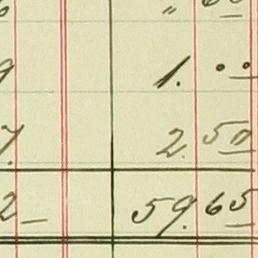 9 1. ..
7 2. 50
2 — 59.65